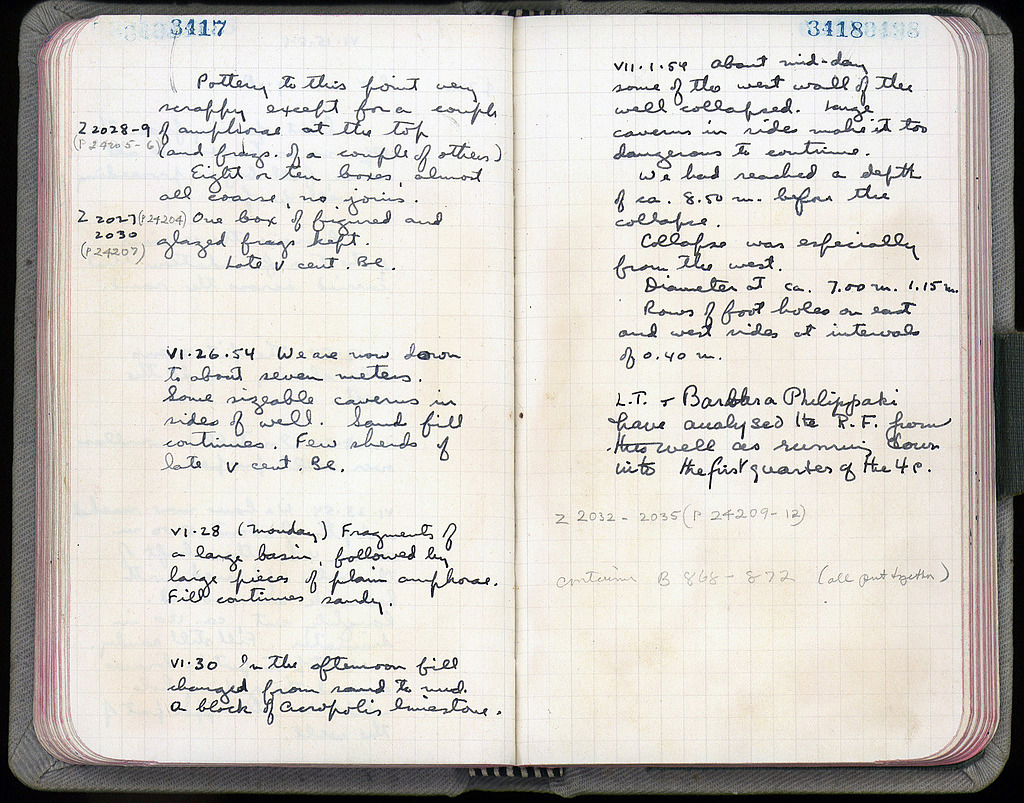 3417
Pottery to this point very
scrappy except for a couple
Z 2028-9 of amphorae at the top
(P 24205-6) (and frags. of a couple of others)
Eight or ten boxes, almost
all coarse, no joins.
Z 2027 (P 24204) One box of figured and
2030 glazed frags kept.
(P 24207)
Late V cent. BC.
VI.26.54 We are now down
to about seven meters.
Some sizeable caverns in
sides of well. Sand fill
continues. Few sherds of
late V cent. BC.
VI.28 (Monday) Fragments of
a large basin, followed by
large pieces of plain amphorae.
Fill continues sandy.
VI.30 In the afternoon fill
changed from sand to mud.
A block of Acropolis limestone.
3418
VII.1.54 About mid-day
some of the west wall of the
well collapsed. Large
caverns in sides make it too
dangerous to continue.
We had reached a depth
of ca. 8.50 m. before the
collapse.
Collapse was especially
from the west.
Diameter at ca. 7.00 m. 1.15 m.
Rows of foot holes on east
and west sides at intervals
of 0.40 m.
L.T. + Barbara Philippaki
have analysed the R.F. from
this well as running down
into the first quarter of the 4 c.
Z 2032 - 2035 (P 24209-12)
container B 868 - 872 (all put together)